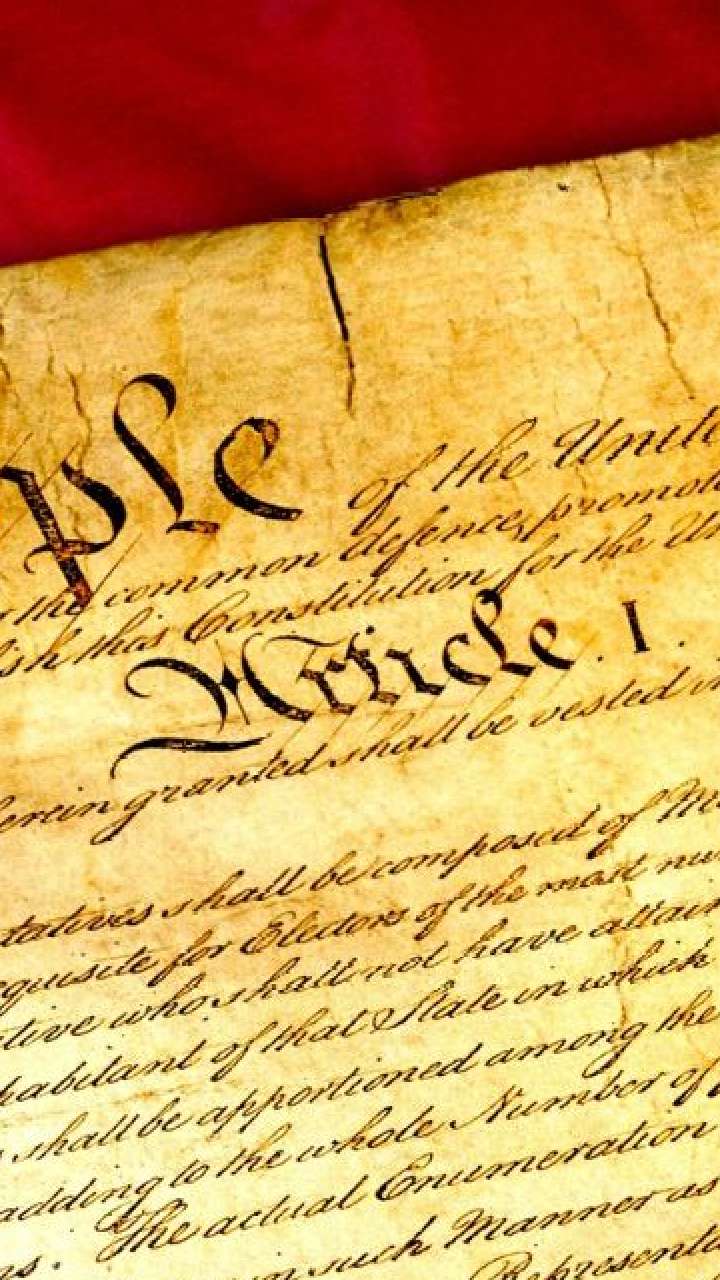 ple of the Unite
the common defence, promot
ish this Constitution for the Un
Article. I.
erein granted shall be vested in
tatives shall be composed of M
equisite for Electors of the most nu
tive who shall not have attain
habitant of that State in which
shall be apportioned among the
adding to the whole Number of
ns. The actual Enumeration
in such Manner as
Represent